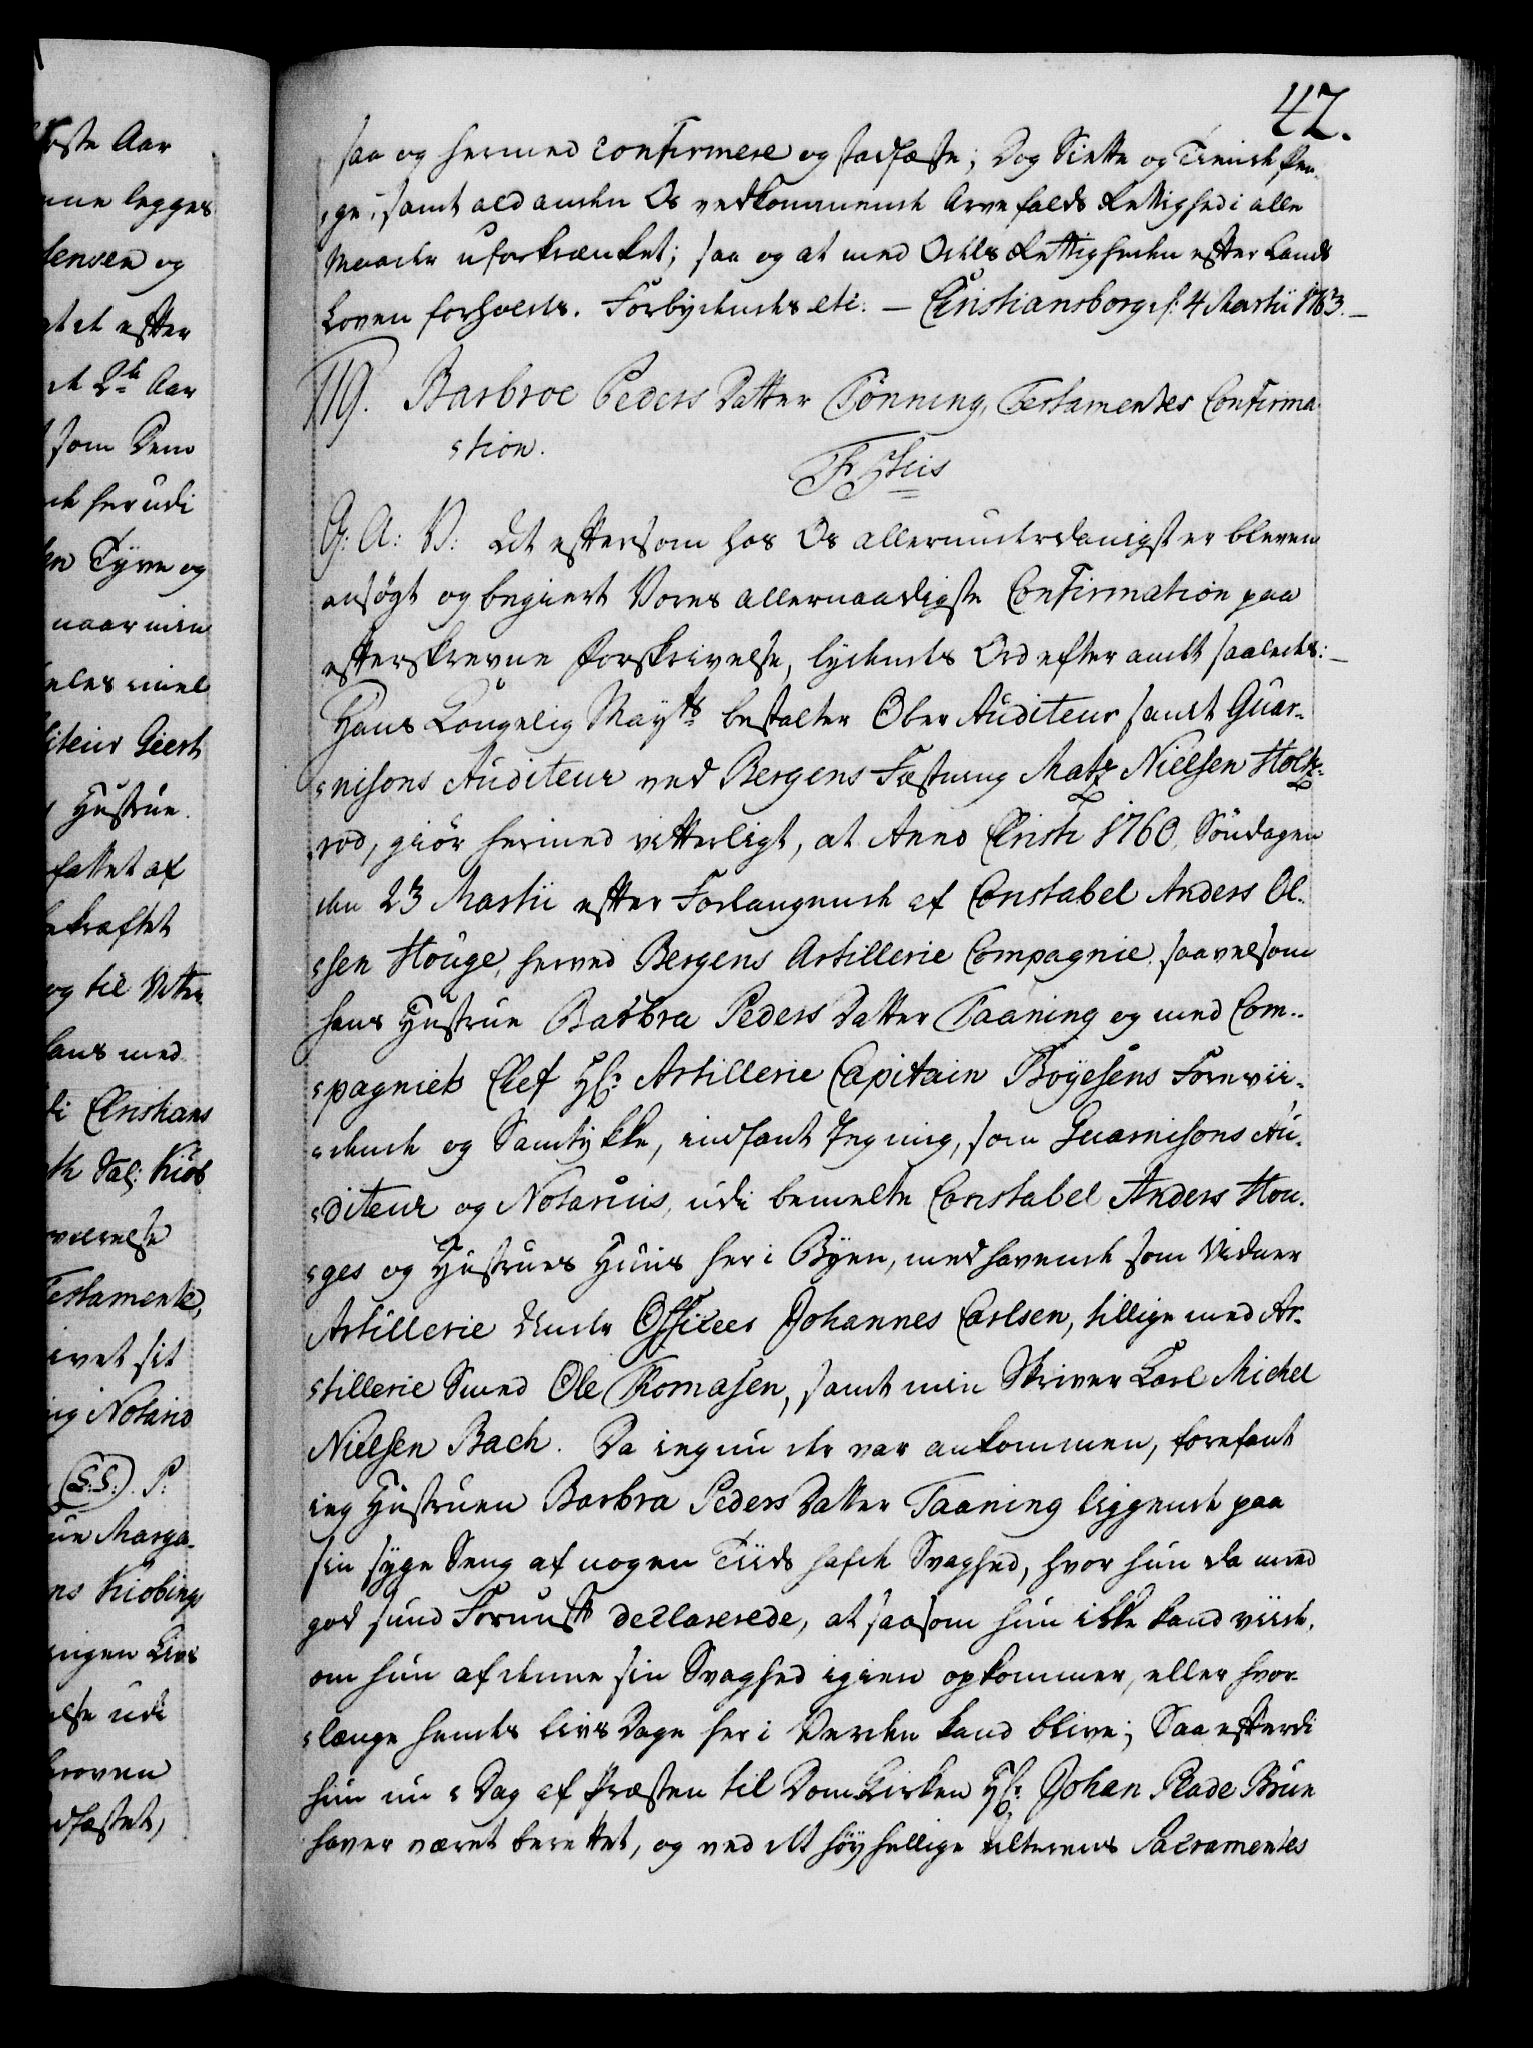 42.
saa og hermed confirmere og stadfæste; Dog Siette og Tiende Pen¬
ge, samt ald anden Os vedkommende Arvefalds Rettighed i alle
Maader uforkrænket; saa og at med Odels Rettigheden efter Lands
Loven forholdes. Forbydendes etc: — Christiansborg d: 4 Martii 1763. —
119. Barbroe Peders Datter Tönning, Testamentes Confirma
tion.
G: A: V: at eftersom hos Os allerunderdanigst er bleven
ansøgt og begiert Vores allernaadigste Confirmation paa
efterskrevne Forskrivelse, lydendes Ord efter andet saaledes: —
Hans Kongelig Mayts bestalter Ober Auditeur samt Guar¬
nisons Auditeur ved Bergens Fæstning Matz Nielsen Holt¬
rod, giör hermed vitterligt, at Anno Christi 1760, Söndagen
den 23 Martii efter Forlangende af Constabel Anders Ol¬
sen Houge, herved Bergens Artillerie Compagnie, saavelsom
hans Hustrue Barbra Peders Datter Taaning og med Com¬
pagniets Chef Hr: Artillerie Capitain Böyesens Forevii¬
dende og Samtykke, indfant Jeg mig, som Guarnisons Au¬
diteur og Notarius, udi bemelte Constabel Anders Hou¬
ges og Hustrues Huus her i Byen, medhavende som Vidner
Artillerie Under Officeer Johannes Carlsen, tillige med Ar¬
tillerie Svend Ole Thomasen, samt min Skriver Carl Michel
Nielsen Bach. Da ieg nu der var ankommen, forefant
ieg Hustruen Barbra Peders Datter Taaning liggende paa
sin syge Seng af nogen Tiids hafde Svaghed, hvor hun da med
god sund Fornuft declarerede, at saasom hun ikke kand viide,
om hun af denne sin Svaghed igien opkommer, eller hvor
længe hendes livs Dage her i Verden kand blive; Saa efterdi
hun nu i Dag af Præsten til DomKirken Hr: Johan Plade Brun
haver været berettet, og ved det höyhellige Alterens Sacramentes